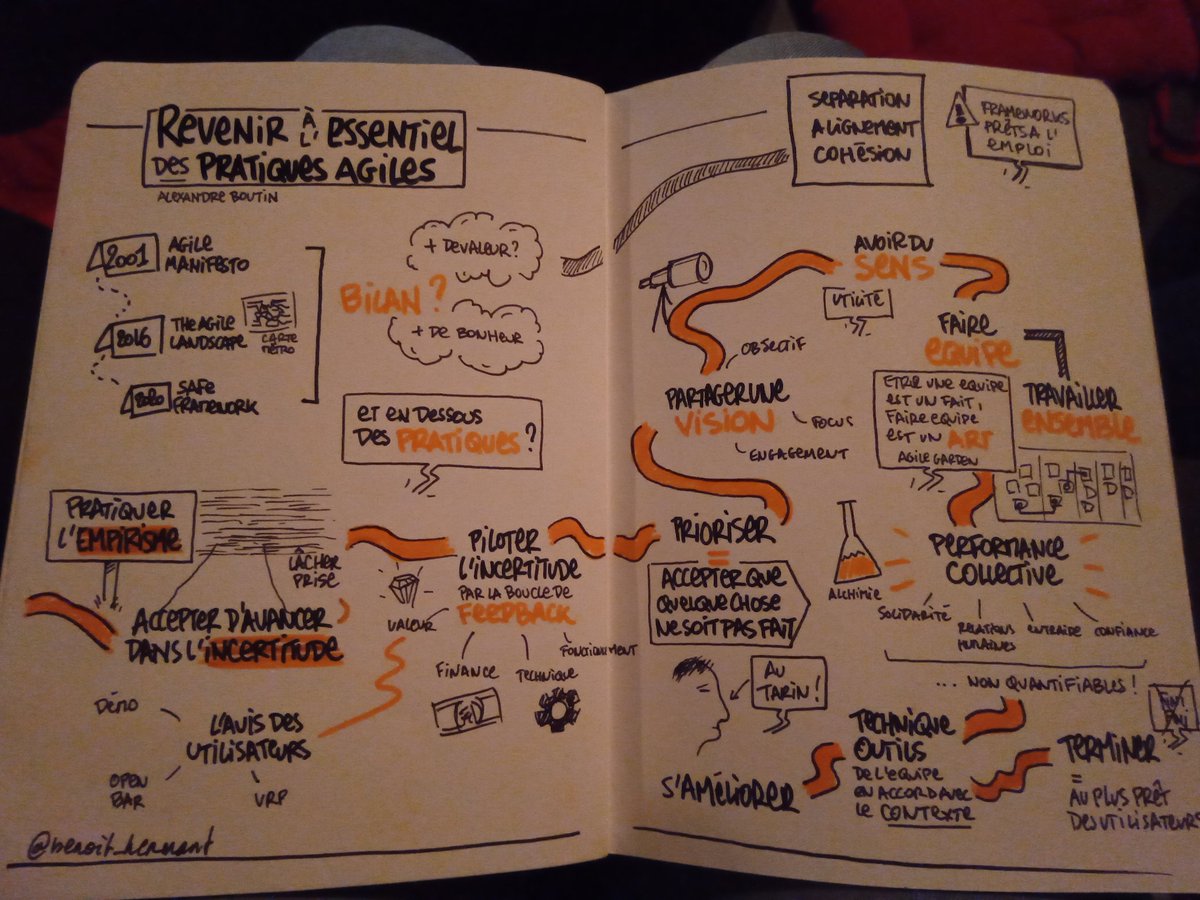 REVENIR À L'ESSENTIEL
DES PRATIQUES AGILES
ALEXANDRE BOUTIN
2001 AGILE
MANIFESTO
2016 THE AGILE
LANDSCAPE
CARTE
MÉTRO
2020 SAFE
FRAMEWORK
BILAN ?
+ DE VALEUR ?
+ DE BONHEUR
ET EN DESSOUS
DES PRATIQUES ?
PRATIQUER
L'EMPIRISME
LÂCHER
PRISE
ACCEPTER D'AVANCER
DANS L'INCERTITUDE
PILOTER
L'INCERTITUDE
PAR LA BOUCLE DE
FEEDBACK
VALEUR
FINANCE
TECHNIQUE
FONCTIONNEMENT
L'AVIS DES
UTILISATEURS
DÉMO
OPEN
BAR
VRP
@benoit_hermant
SEPARATION
ALIGNEMENT
COHÉSION
! FRAMEWORKS
PRÊTS A L'
EMPLOI
AVOIR DU
SENS
UTILITÉ
FAIRE
EQUIPE
ETRE UNE EQUIPE
EST UN FAIT,
FAIRE EQUIPE
EST UN ART
AGILE GARDEN
TRAVAILLER
ENSEMBLE
OBJECTIF
PARTAGER UNE
VISION
FOCUS
ENGAGEMENT
PRIORISER
=
ACCEPTER QUE
QUELQUE CHOSE
NE SOIT PAS FAIT
ALCHIMIE
PERFORMANCE
COLLECTIVE
SOLIDARITÉ
RELATIONS
HUMAINES
ENTRAIDE
CONFIANCE
... NON QUANTIFIABLES !
AU
TARIN !
S'AMÉLIORER
TECHNIQUE
OUTILS
DE L'EQUIPE
EN ACCORD AVEC
LE CONTEXTE
TERMINER
=
AU PLUS PRÊT
DES UTILISATEURS